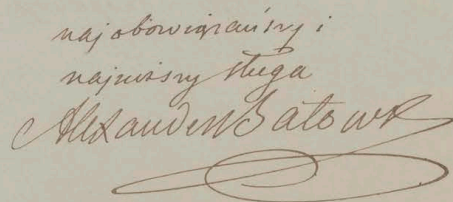 najobowiązańszy i
najniższy sługa
Alexander Batowski